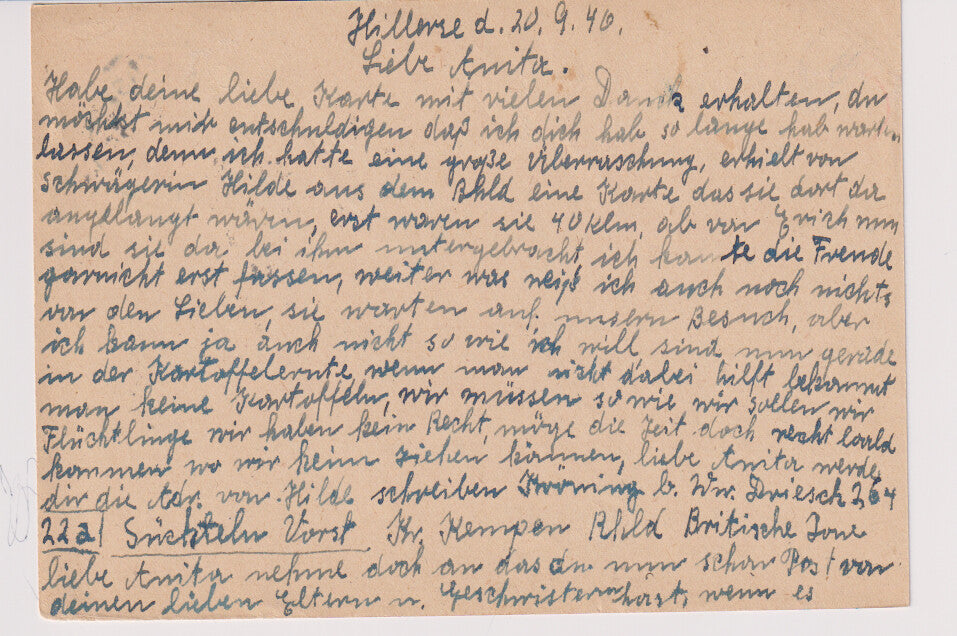 Hillerse d. 20. 9. 46.
Liebe Anita.
Habe deine liebe Karte mit vielen Dank erhalten, du
möchtst mir entschuldigen daß ich dich hab so lange hab warten
lassen, denn ich hatte eine große Überraschung, erhielt von
Schwägerin Hilde aus dem Rhld eine Karte das sie dort da
angelangt wären, erst waren sie 40 klm, ab von Erich nun
sind sie da bei ihm untergebracht, ich konnte die Freude
garnicht erst fassen, weiter was weiß ich auch noch nichts
von den Lieben, sie warten auf unsern Besuch, aber
ich kann ja auch nicht so wie ich will sind nun gerade
in der Kartoffelernte, wenn man nicht dabei hilft bekommt
man keine Kartoffeln, wir müssen so wie wir sollen wir
Flüchtlinge wir haben kein Recht, möge die Zeit doch recht bald
kommen wo wir heim ziehen können, liebe Anita werde
dir die Adr. von Hilde schreiben Kröning b. Ww. Driesch 264
22a) Süchteln Vorst Kr. Kempen Rhld Britische Zone
liebe Anita nehme doch an das du nun schon Post von
deinen lieben Eltern u. Geschwistern hast, wenn es